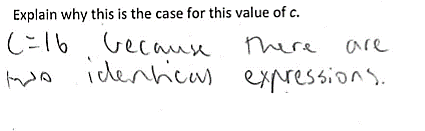 Explain why this is the case for this value of c.
C=16 because there are
two identical expressions.